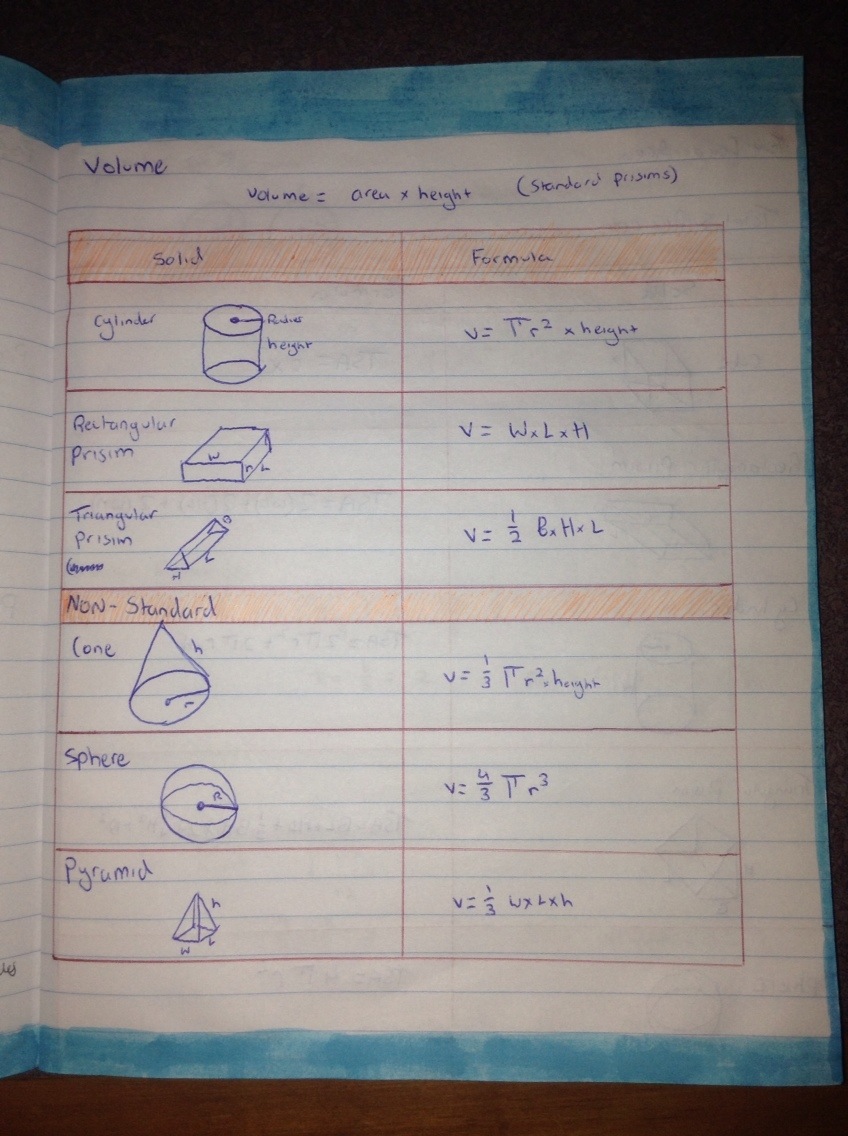 Volume
Volume = area × height (Standard prisims)
Solid Formula
Cylinder
Radius
height
V = πr² × height
Rectangular
Prisim
W
H
L
V = W×L×H
Triangular
Prisim
B
L
H
V = 1/2 B×H×L
Non-Standard
Cone
h
r
V = 1/3 πr² × height
Sphere
R
V = 4/3 πr³
Pyramid
h
L
W
V = 1/3 W×L×h